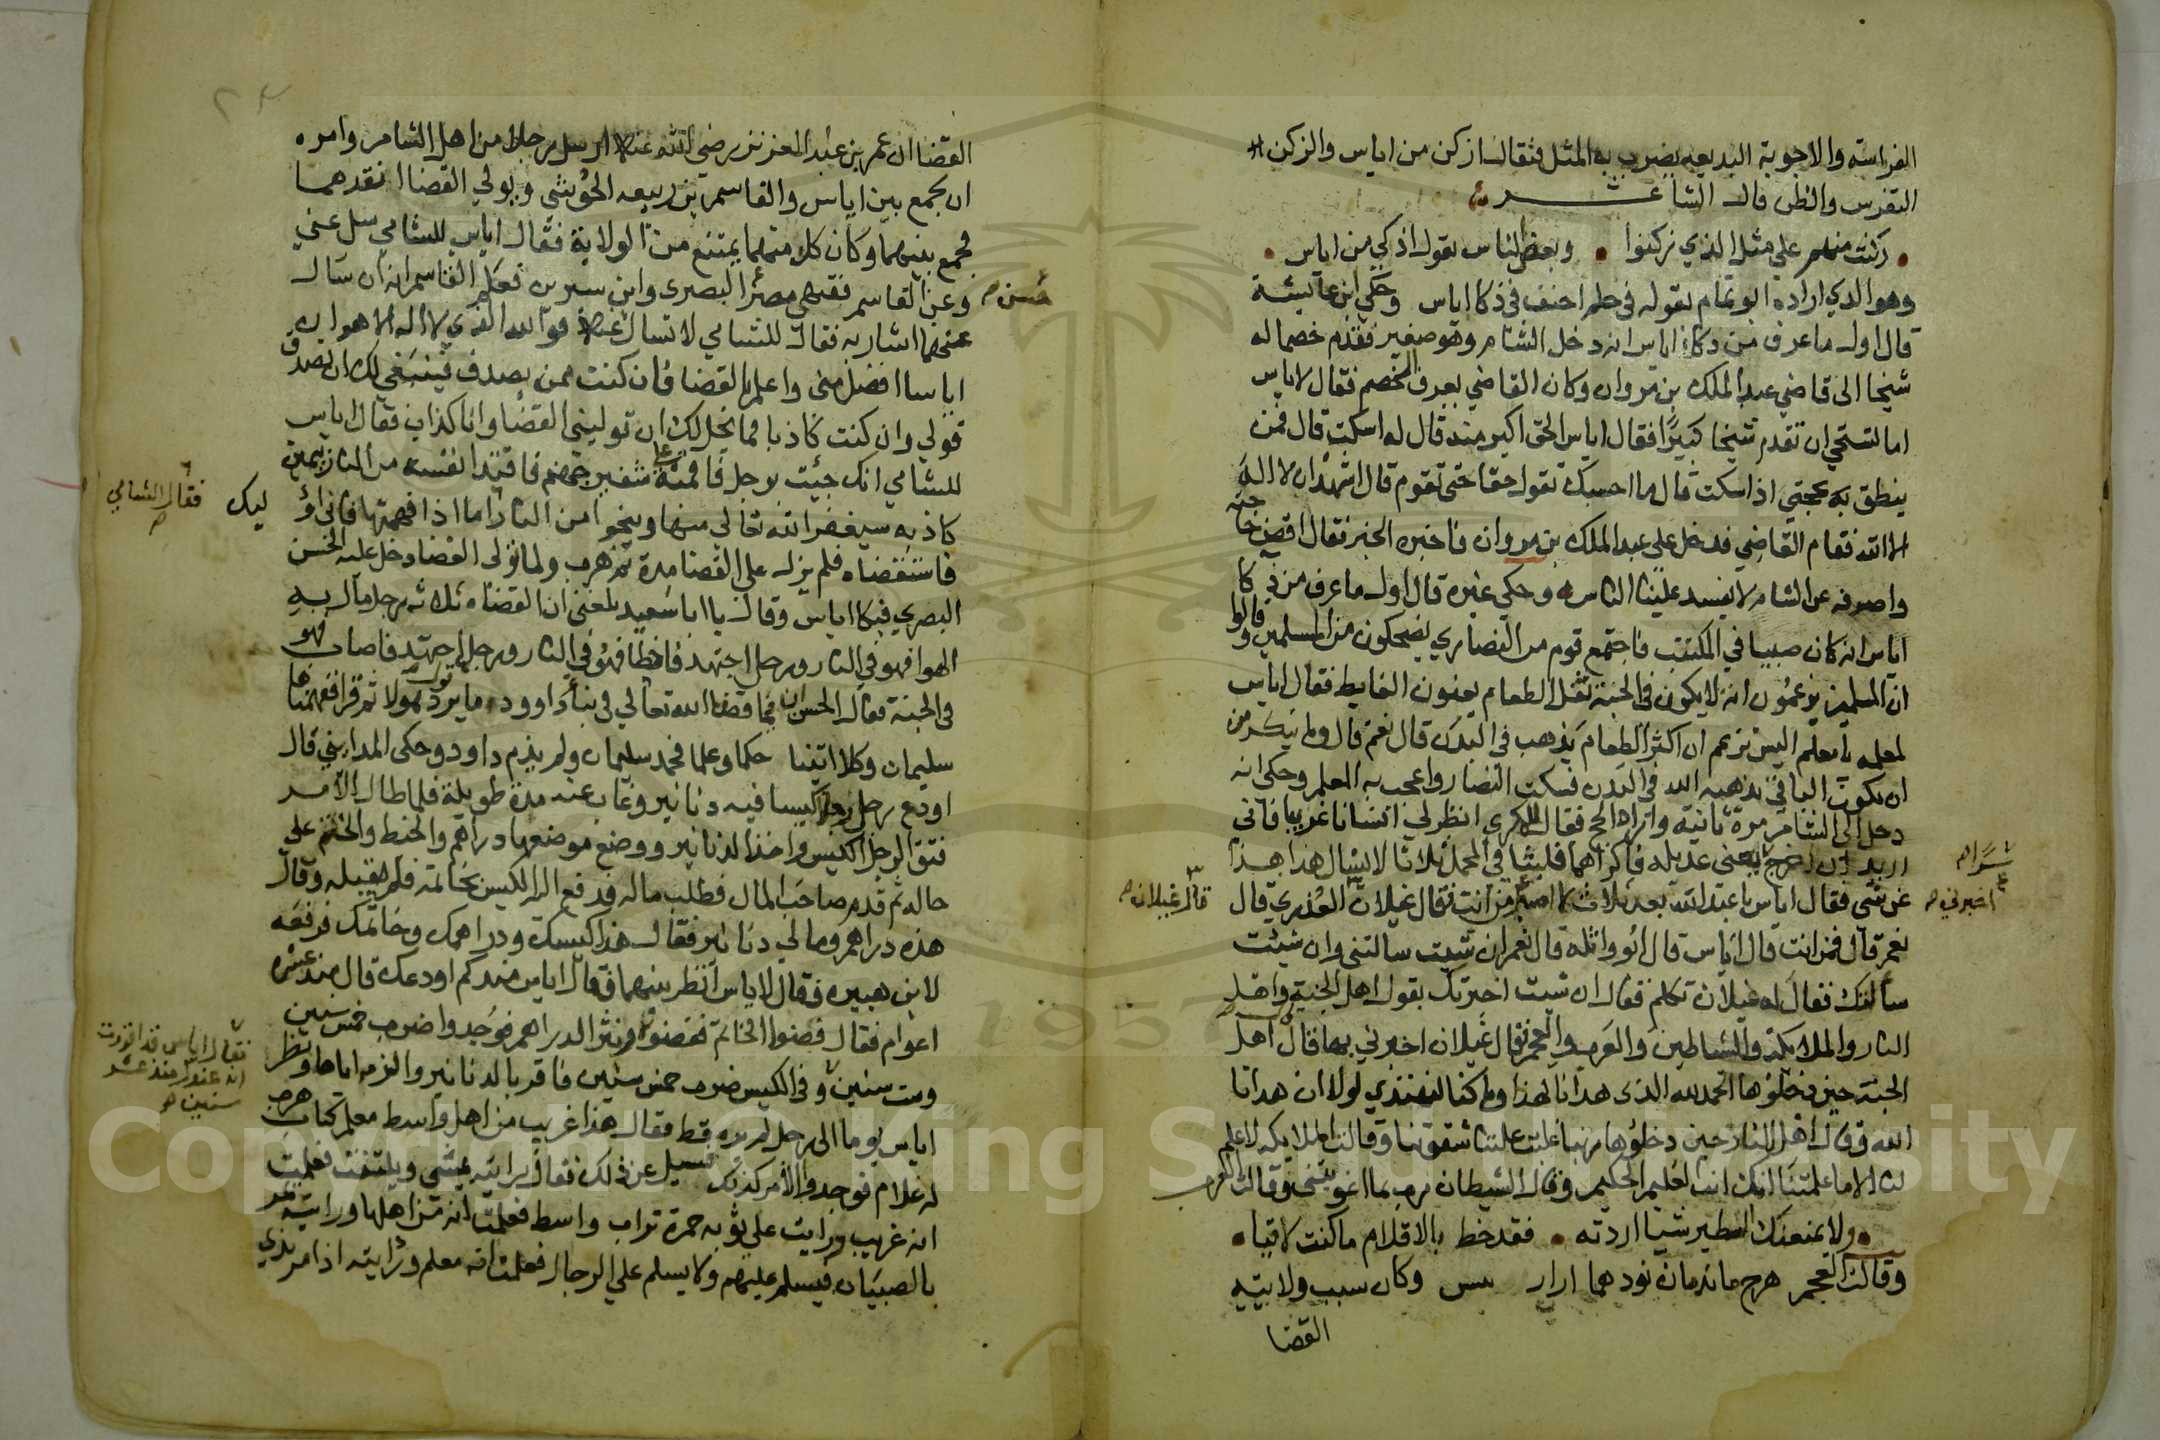 الفراسته والاجوبة البديعه يضرب به المثل فيقال ازكن من اياس والزكن
التفرس والظن قال الشاعـــر
زكنت منهم على مثل الذي زكنوا وبعض الناس يقول اذكي من اياس
وهو الذي اراده ابو تمام بقوله في حلم احنف في ذكا اياس وحكي ابن عايشة
قال اول ما عرف من ذكاء اياس انه دخل الشام وهو صغير فقدم خصما له
شيخا الى قاضي عبد الملك بن مروان وكان القاضي يعرف الخصم فقال لاياس
اما تستحي ان تقدم شيخا كبيرا فقال اياس الحق اكبر منه قال له اسكت قال فمن
ينطق به بحجتي اذا سكت قال ما احسبك تقول حقا حتى تقوم قال اشهد ان لا اله
الا الله فقام القاضي فدخل على عبد الملك بن مروان فاخبره الخبر فقال اقض حاجته
واصرفه عن الشام لا يفسد علينا الناس وحكي غيره قال اول ما عرف من ذكا
اياس انه كان صبيا في المكتب فاجتمع قوم من النصارى يضحكون من المسلمين وقالوا
ان المسلمين يزعمون انه لا يكون في الجنة ثقل الطعام يعنون الغايط فقال اياس
لمعلمه يا معلم اليس تزعم ان اكثر الطعام يذهب في البدن قال نعم قال ولم تنكر من
ان يكون الباقي يذهبه الله في البدن فسكت النصارا واعجب به المعلم وحكي انه
دخل الى الشام مرة ثانية واراد الحج فقال للمكري انظر لي انسانا غريبا فاني
اريد ان اخرج يعني عديله فاكراهما فلبثا في المحمل ثلاثا لا يسال هذا هذا
شراه
عن شي فقال اياس يا عبد الله بعد ثلاث من انت فقال غيلان العذري قال
اخبرني
قال غيلان
نعم قال فمن انت قال اياس قال ابو واثلة قال نعم ان شيت سالتني وان شيت
سألتك فقال له غيلان تكلم فقال ان شيت اخبرتك بقول اهل الجنة واهل
النار والملايكة والشياطين والعرب والعجم فقال غيلان اخبرني بها قال اهل
الجنة حين دخلوها الحمد لله الذى هدانا لهذا وما كنا لنهتدي لولا ان هدانا
الله وقال اهل النار حين دخلوها ربنا غلبت علينا شقوتنا وقالت الملايكه لا علم
لنا الا ما علمتنا انك انت العليم الحكيم وقال الشيطان رب بما اغويتني وقالت العرب
ولا يمنعنك الطير شيا اردته فقد خط بالاقلام ما كنت لاقيا
وقالت العجم هرج وكان سبب ولايته
القضا
القضا ان عمر بن عبد العزيز رضي الله عنه ارسل رجلا من اهل الشام وامره
ان يجمع بين اياس والقاسم بن ربيعه الحوشي ويولي القضا انقدهما
فجمع بينهما وكان كل منهما يمتنع من الولاية فقال اياس للشامي سل عني
وعن القاسم فقيهي مصر البصرى وابن سيرين فعلم القاسم انه ان سال
حسن
عنهما اشارا به فقال للشامي لا تسال عنه فوالله الذي لا اله الا هو ان
اياسا افضل مني واعلم بالقضا فان كنت ممن يصدق فينبغي لك ان تصدق
قولي وان كنت كاذبا فما يحل لك ان توليني القضا وانا كذاب فقال اياس
للشامي انك جيت برجل فاقمته على شفير جهنم فافتدا نفسه من النار بيمين
كاذبه سيغفر الله تعالى منها وينجوا من النار اما اذا فهمتها فاني اوليك
فقال الشامي
فاستقضاه فلم يزل على القضا مدة ثم هرب ولما تولى القضا دخل عليه الحسن
البصري فبكا اياس وقال يا ابا سعيد بلغني ان القضاه ثلاثه رجل مال به
الهوا فهو في النار ورجل اجتهد فاخطا فهو في النار ورجل اجتهد فاصاب فهو
في الجنة فقال الحسن ان فيما قضا الله تعالي في نبأ داوود ما يرد قول هولا ثم قرا ففهمناها
سليمان وكلا اتينا حكما وعلما فحمد سليمان ولم يذم داود وحكى المدايني قال
اودع رجل رجلا كيسا فيه دنانير وغاب عنه مدة طويلة فلما طال الامر
فتق الرجل الكيس واخذ الدنانير ووضع موضعها دراهم والخيط والختم على
حاله ثم قدم صاحب المال فطلب ماله فدفع اليه الكيس بخاتمه فلم يقبله وقال
هذه دراهم ومالي دنانير فقال هذا كيسك ودراهمك وخاتمك فرفعه
لابن هبيره فقال لاياس انظر بينهما فقال اياس منذ كم اودعك قال منذ عشرة
اعوام فقال فضوا الخاتم ففضوه ونثر الدراهم فوجدوا ضرب خمس سنين
وست سنين وفى الكيس ضرب خمس سنين فاقر بالدنانير والزمه اياها ونظر
فقال اياس قد اقررت
انه عندك منذ عشر
سنين
اياس يوما الى رجل لم يره قط فقال هذا غريب من اهل واسط معلم كتاب هرب
له غلام فوجدوا الامر كذلك فسيل عن ذلك فقال رايته يمشي ويلتفت فعلمت
انه غريب ورايت على ثوبه حمرة تراب واسط فعلمت انه من اهلها ورايته يمر
بالصبيان فيسلم عليهم ولا يسلم على الرجال فعلمت انه معلم ورايته اذا مر بذي